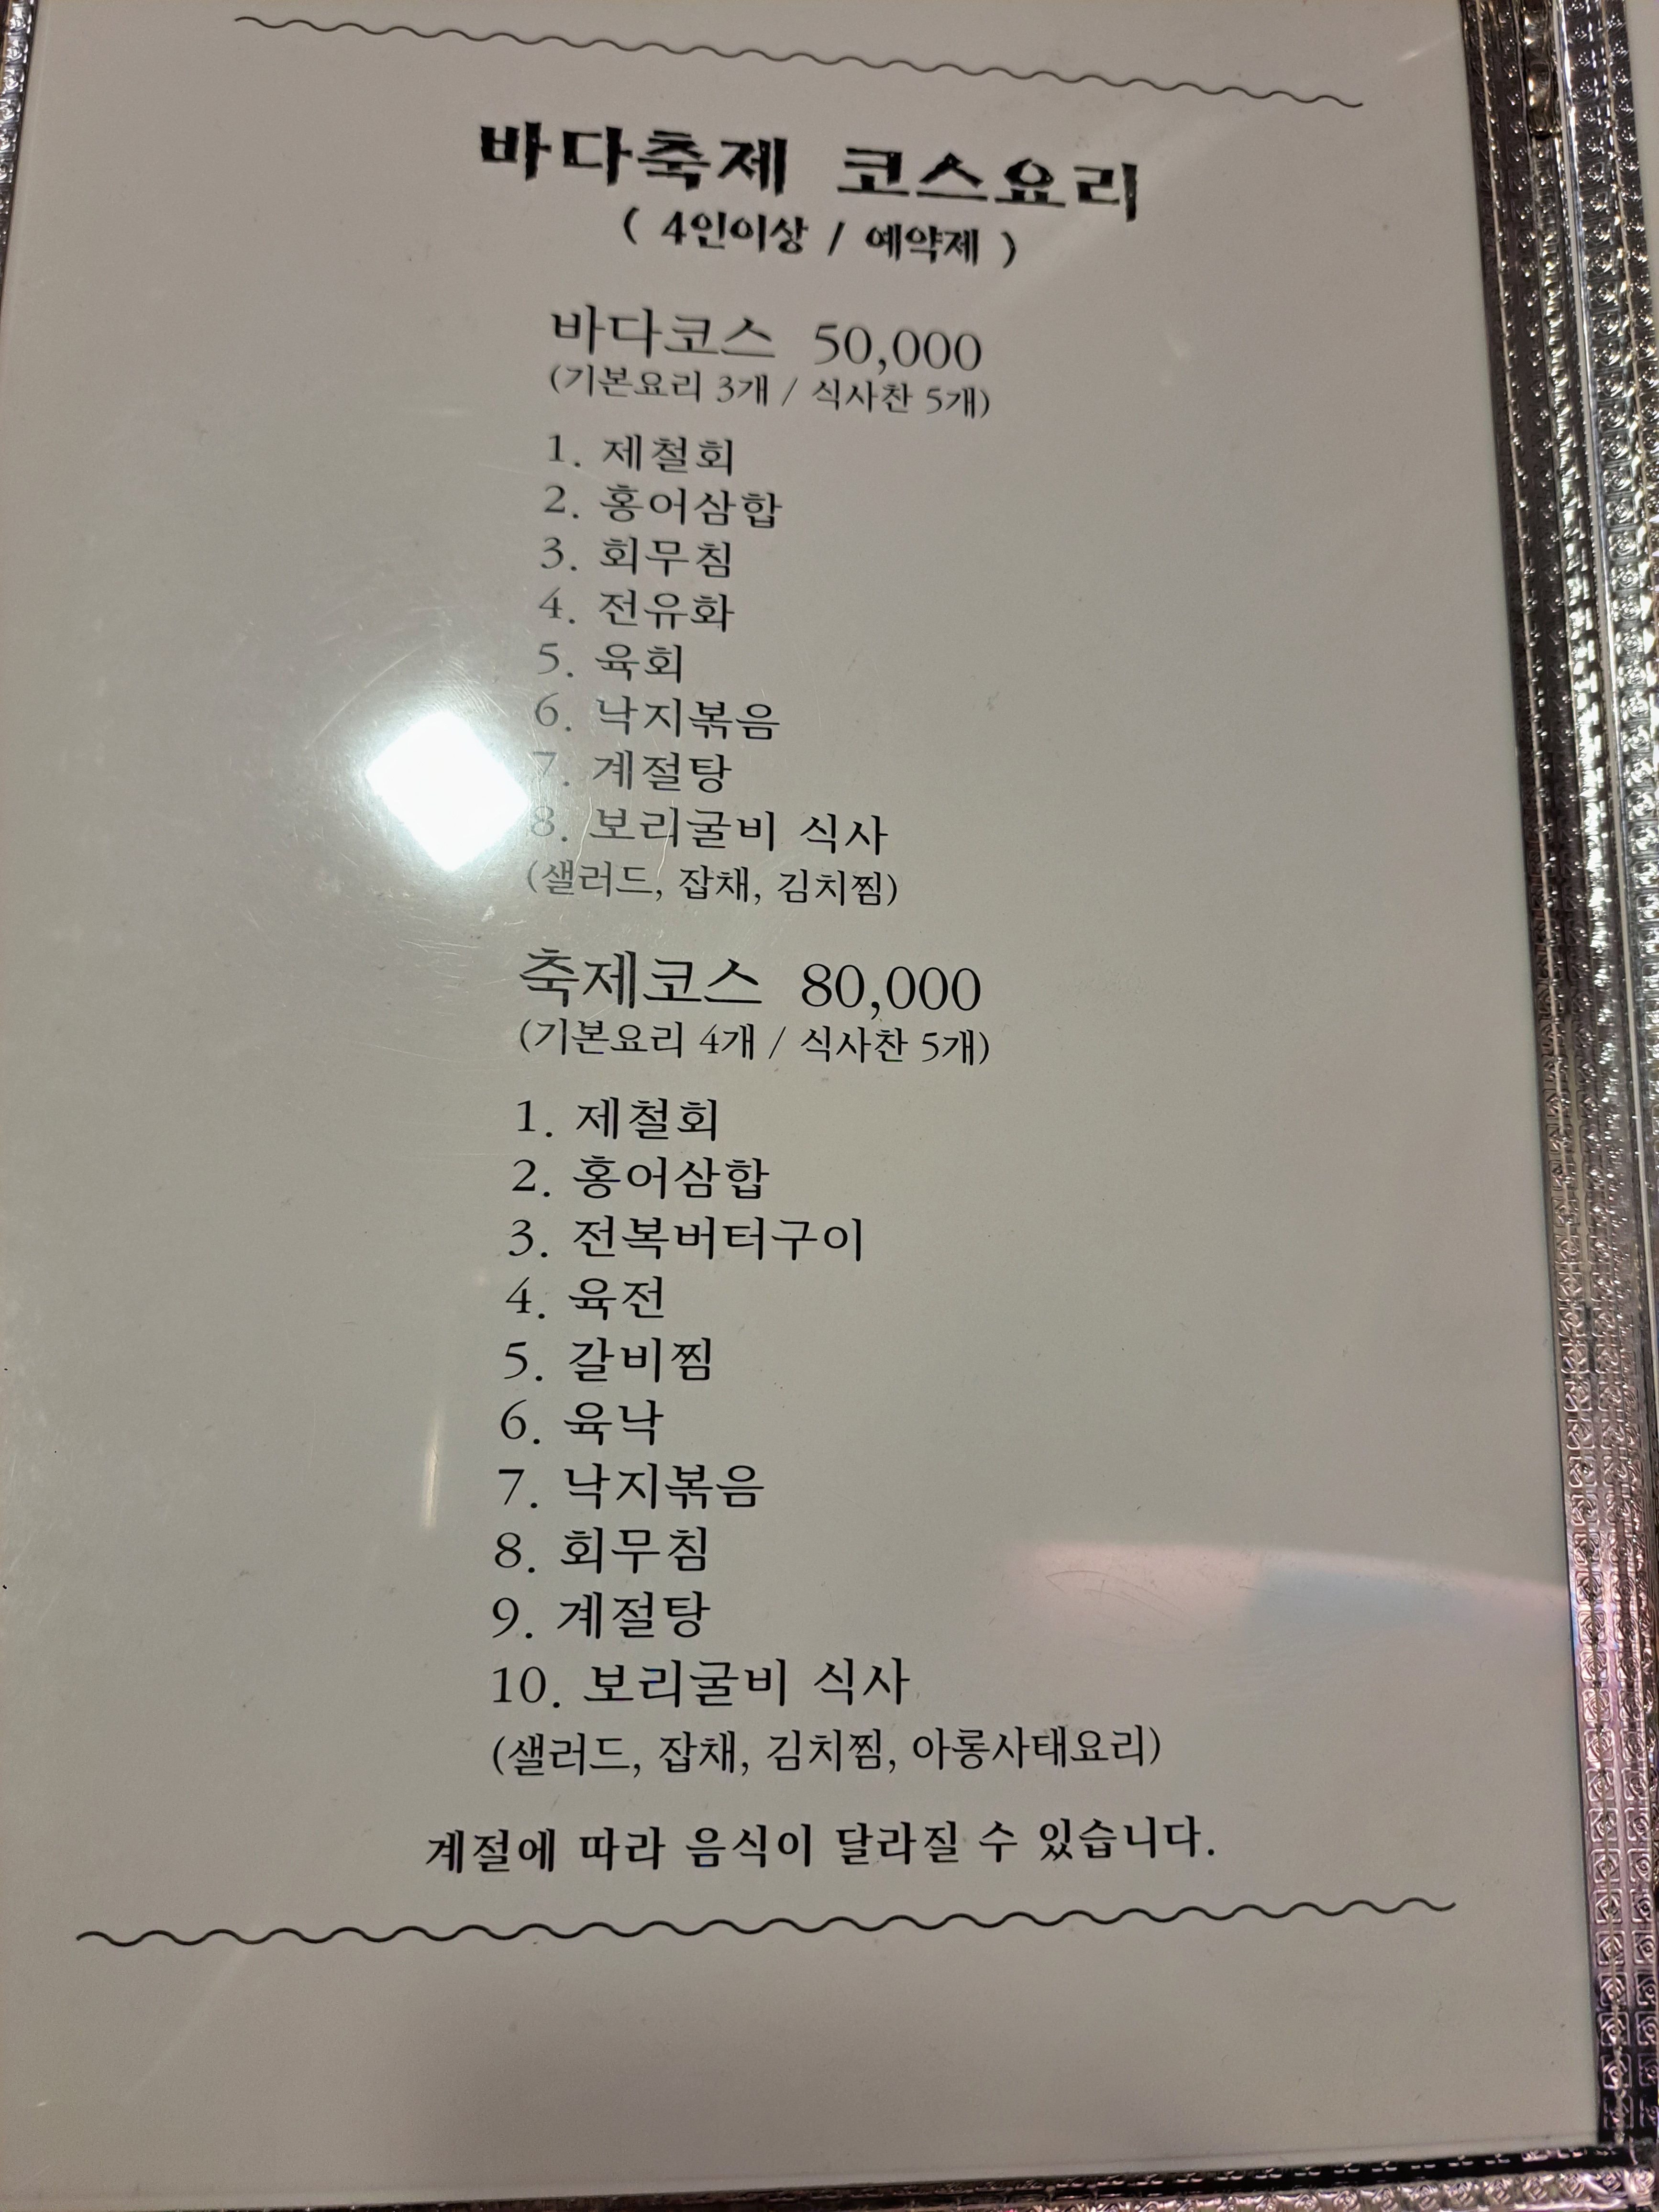 바다축제 코스요리
( 4인이상 / 예약제 )
바다코스 50,000
(기본요리 3개 / 식사찬 5개)
1. 제철회
2. 홍어삼합
3. 회무침
4. 전유화
5. 육회
6. 낙지볶음
7. 계절탕
8. 보리굴비 식사
(샐러드, 잡채, 김치찜)
축제코스 80,000
(기본요리 4개 / 식사찬 5개)
1. 제철회
2. 홍어삼합
3. 전복버터구이
4. 육전
5. 갈비찜
6. 육낙
7. 낙지볶음
8. 회무침
9. 계절탕
10. 보리굴비 식사
(샐러드, 잡채, 김치찜, 아롱사태요리)
계절에 따라 음식이 달라질 수 있습니다.